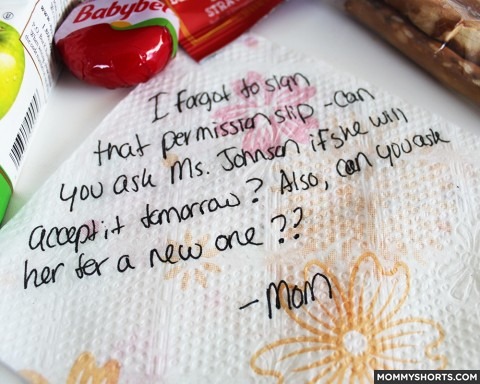 Babybel
STRA
I forgot to sign
that permission slip - can
you ask Ms. Johnson if she will
accept it tomorrow? Also, can you ask
her for a new one??
- Mom
MOMMYSHORTS.COM